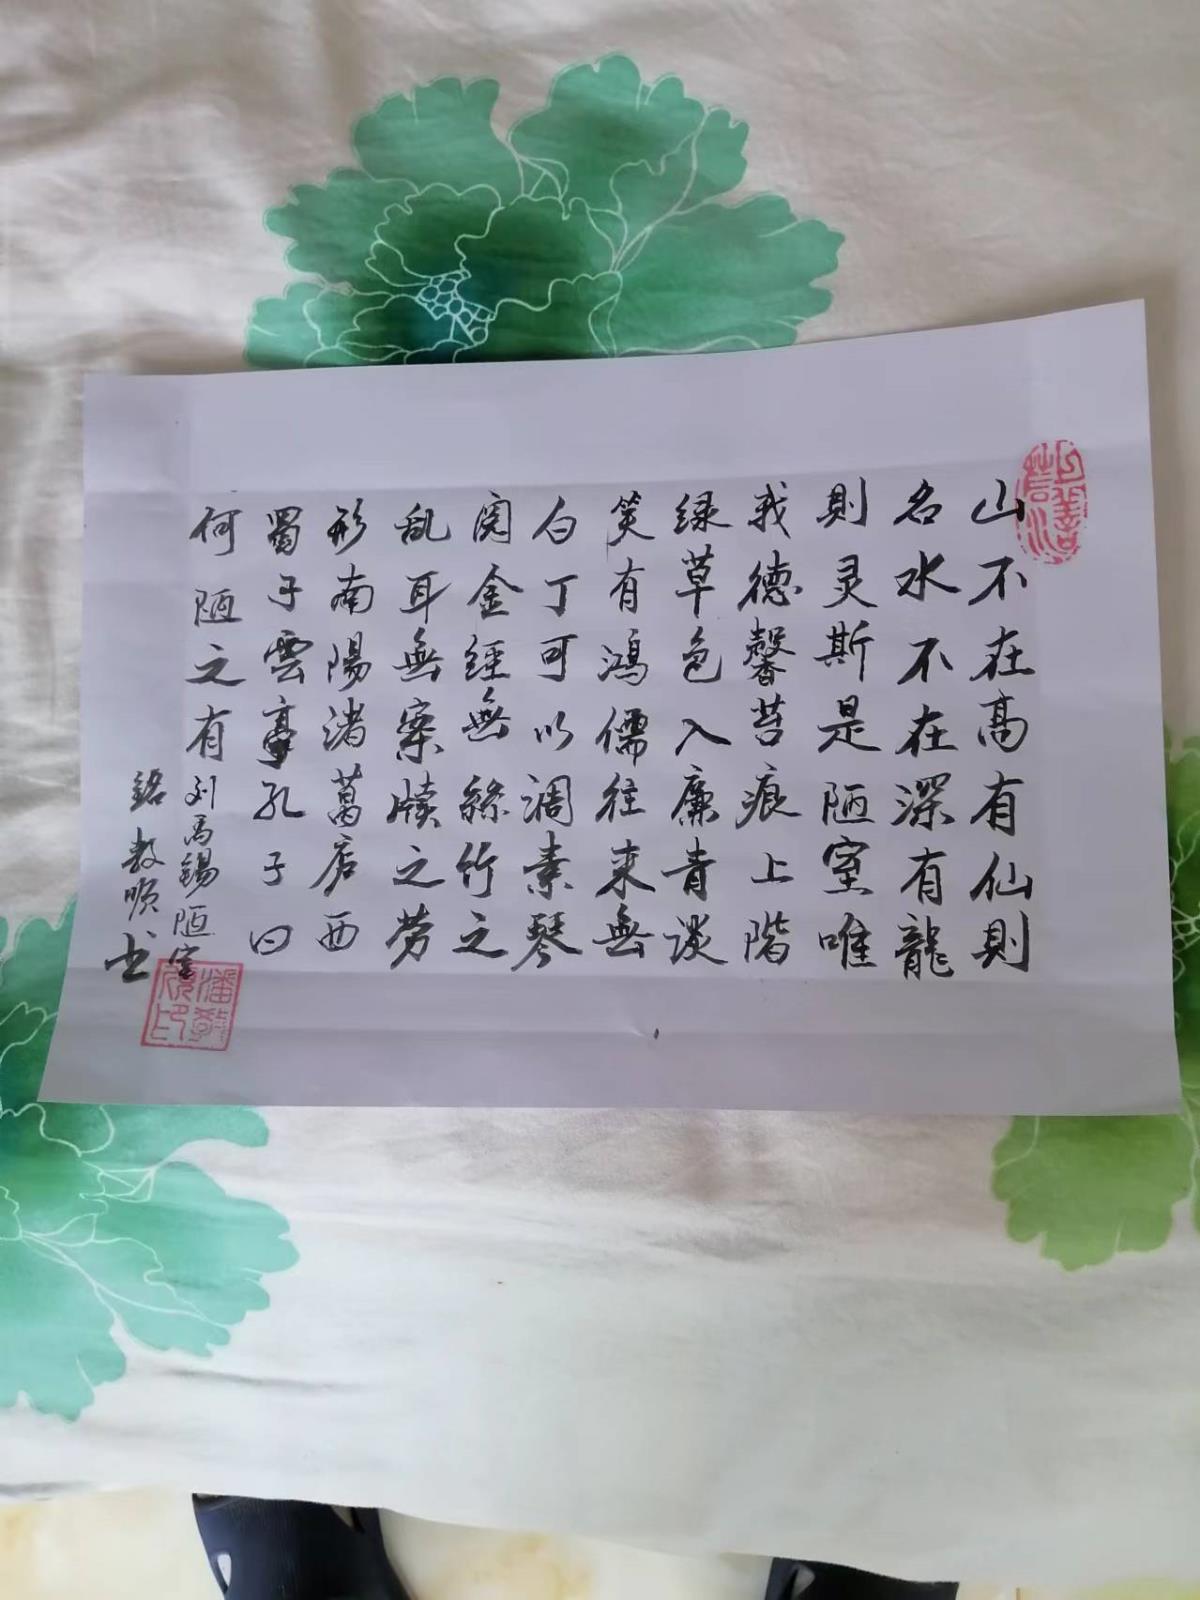 上善若水
山不在高有仙則
名水不在深有龍
則灵斯是陋室唯
我德馨苔痕上階
绿草色入廉青談
笑有鴻儒往来無
白丁可以調素琴
阅金經無絲竹之
乱耳無案牍之劳
形南陽渚葛庐西
蜀子雲亭孔子曰
何陋之有
刘禹锡陋室
銘 順书